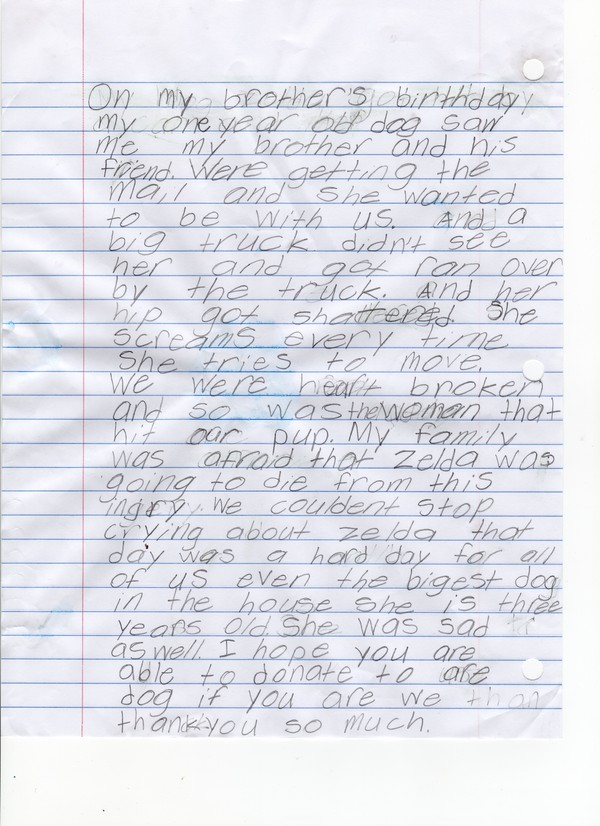 On my brother's birthday
my one year old dog saw
me my brother and his
friend. Were getting the
mail and she wanted
to be with us. And a
big truck didn't see
her and got ran over
by the truck. And her
hip got shattered. She
screams every time
she tries to move.
We were heart broken
and so was the woman that
hit oar pup. My family
was afraid that Zelda was
going to die from this
ingry. We couldent stop
crying about zelda that
day was a hard day for all
of us even the bigest dog
in the house she is three
years old. She was sad
as well. I hope you are
able to donate to are
dog if you are we
thank you so much.